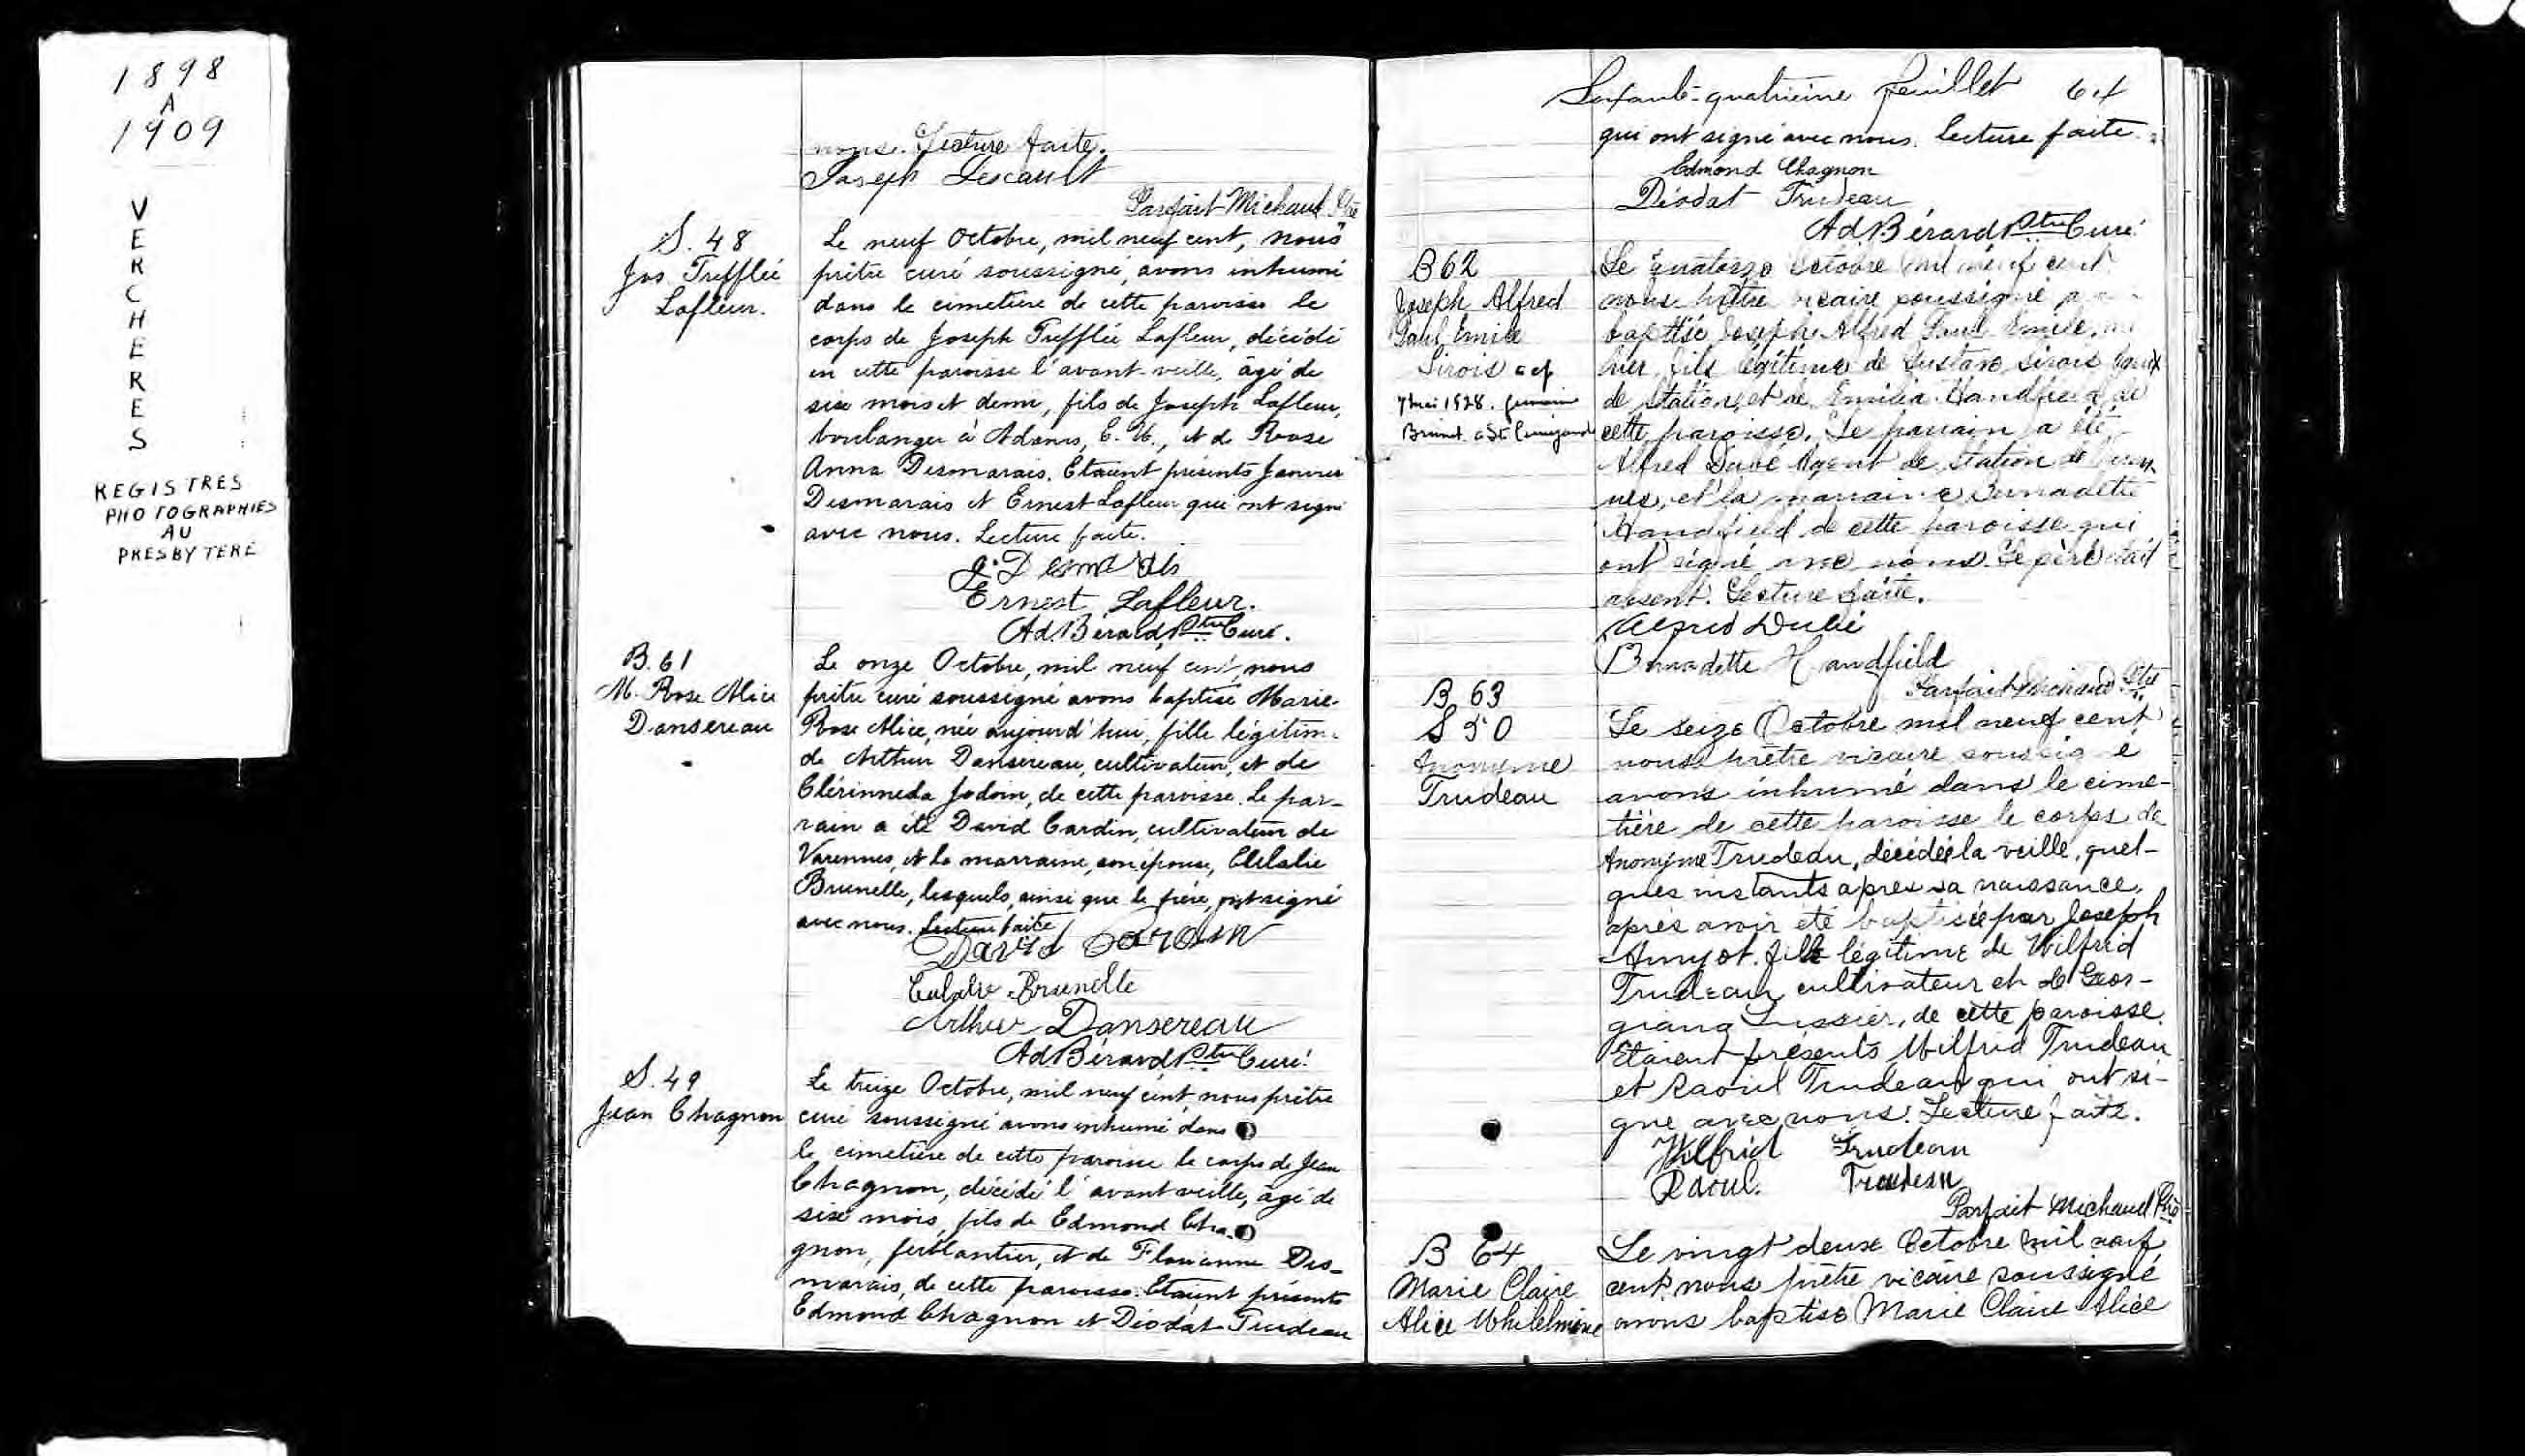 1898
A
1909
VERCHERES
REGISTRES
PHOTOGRAPHIES
AU
PRESBYTERE
nous. Lecture faite.
Joseph Lescault
Parfait Michaud Ptre
S. 48
Jos Trefflé
Lafleur.
Le neuf Octobre, mil neuf cent, nous
prêtre curé soussigné, avons inhumé
dans le cimetière de cette paroisse le
corps de Joseph Trefflé Lafleur, décédé
en cette paroisse l'avant-veille, âgé de
six mois et demi, fils de Joseph Lafleur,
boulanger à Adams, E. U., et de Rose
Anna Desmarais. Etaient présents Janvier
Desmarais et Ernest Lafleur qui ont signé
avec nous. Lecture faite.
Ernest Lafleur.
Ad. Bérard, Ptre Curé.
B. 61
M. Rose Alice
Dansereau
Le onze Octobre, mil neuf cent, nous
prêtre curé soussigné avons baptisé Marie-
Rose Alice, née aujourd'hui, fille légitime
de Arthur Dansereau, cultivateur, et de
Clérinneda Jodoin, de cette paroisse. Le par-
rain a été David Cardin, cultivateur de
Varennes, et la marraine, son épouse,
Brunelle, lesquels, ainsi que le père, ont signé
avec nous. Lecture faite
David Cardin
Eulalie Brunelle
Arthur Dansereau
Ad Bérard Ptre Curé.
S. 49
Jean Chagnon
Le treize Octobre, mil neuf cent, nous prêtre
curé soussigné avons inhumé dans
le cimetière de cette paroisse le corps de Jean
Chagnon, décédé l'avant veille, âgé de
six mois, fils de Edmond Cha-
gnon, ferblantier, et de Florianne Des-
marais, de cette paroisse. Etaient présents
Edmond Chagnon et Déodat Trudeau
Soixante-quatrième feuillet 64
qui ont signé avec nous. lecture faite.
Edmond Chagnon
Déodat Trudeau
Ad. Bérard Ptre Curé.
B 62
Joseph Alfred
Paul Emile
Sirois
7 mai 1928. Germaine
Brunet
Le quatorze Octobre mil neuf cent
nous prêtre vicaire soussigné
baptisé Joseph Alfred Paul Emile,
hier, fils légitime de Gustave Sirois
de station, et de Emilia Handfield de
cette paroisse. Le parrain a été
Alfred Dubé Agent de station de Varen-
nes, et la marraine Bernadette
Handfield de cette paroisse qui
ont signé avec nous. Le père était
absent. Lecture faite.
Alfred Dubé
Bernadette Handfield
Parfait Michaud Ptre
B 63
S 50
Anonyme
Trudeau
Le seize Octobre mil neuf cent
nous prêtre vicaire soussigné
avons inhumé dans le cime-
tière de cette paroisse le corps de
Anonyme Trudeau, décédée la veille, quel-
ques instants après sa naissance,
après avoir été baptisée par Joseph
Amyot. fille légitime de Wilfrid
Trudeau cultivateur et de Geor-
giana Lussier, de cette paroisse.
Etaient présents Wilfrid Trudeau
et Raoul Trudeau qui ont si-
gné avec nous. Lecture faite.
Wilfrid Trudeau
Raoul. Trudeau
Parfait Michaud Ptre
B 64
Marie Claire
Alice Whilelmine
Le vingt deux Octobre mil neuf
cent nous prêtre vicaire soussigné
avons baptisé Marie Claire Alice